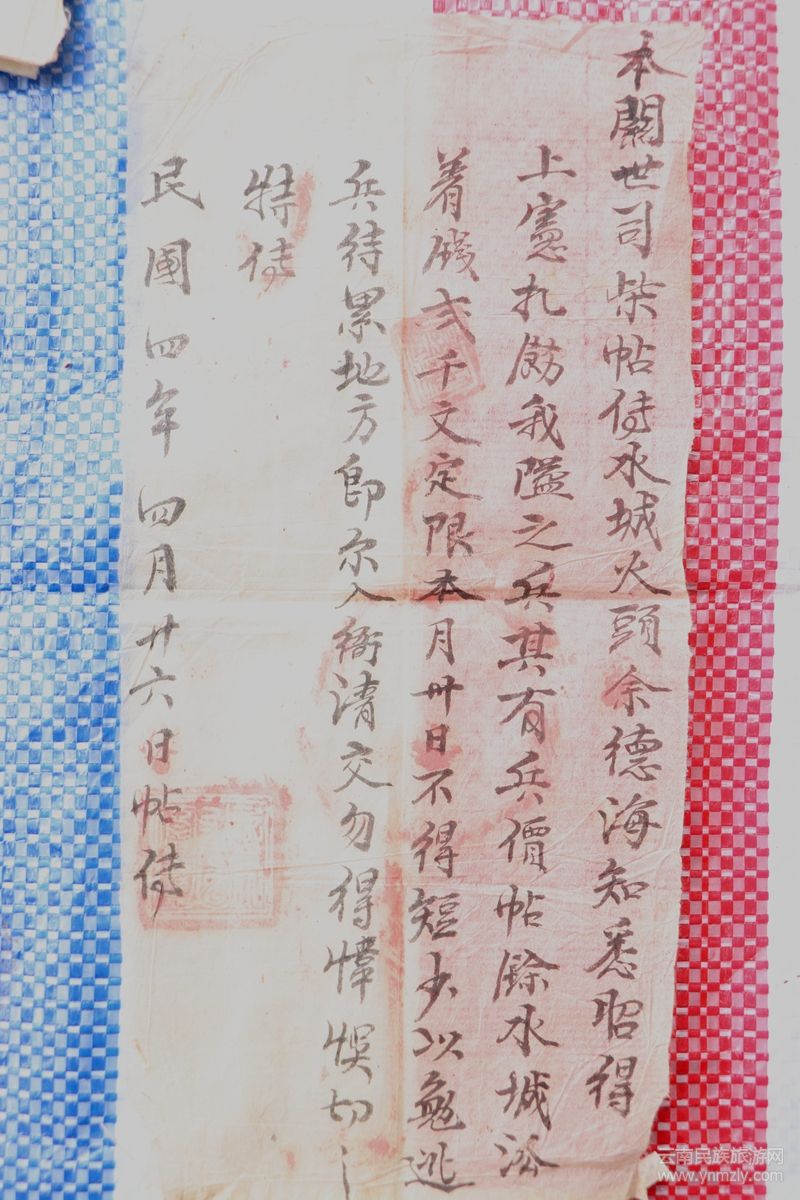 本關世司柴帖傳水城火頭余德海知悉昭得
上憲扎飭我隘之兵其有兵價帖餘水城汾
着殘弍千文定限本月卅日不得短少以兔逃
兵待累地方即尔入衙清交勿得悞切之
特傳
民國四年四月廿六日帖傳
云南民族旅游网
www.ynmzly.com